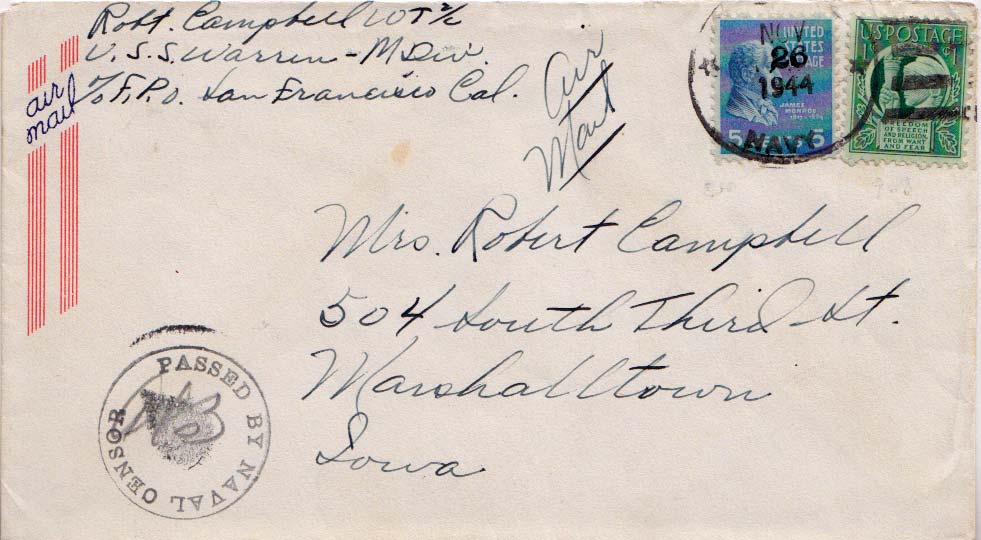 Robt. Campbell WT 2/c
U.S.S. Warren - M Div.
c/o F.P.O. San Francisco Cal.
air
mail
Air
Mail
NOV
26
1944
NAVY
UNITED
STATES
POSTAGE
JAMES
MONROE
5 CENTS 5
U.S. POSTAGE
1¢
FREEDOM
OF SPEECH
AND RELIGION,
FROM WANT
AND FEAR
Mrs. Robert Campbell
504 South Third St.
Marshalltown
Iowa
PASSED BY NAVAL CENSOR